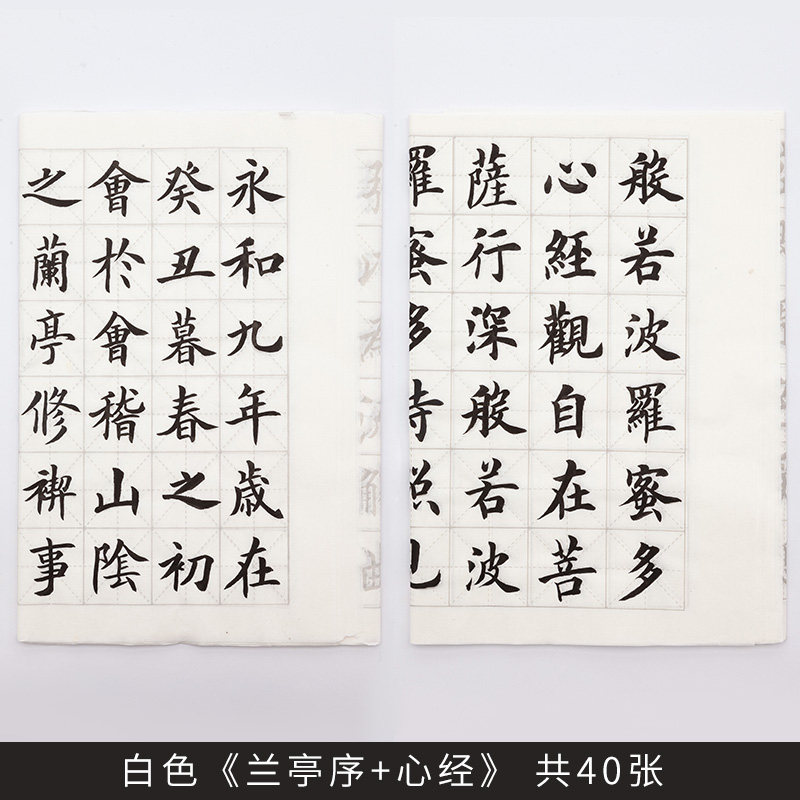 永和九年歳在
癸丑暮春之初
會於會稽山陰
之蘭亭修禊事
般若波羅蜜多
心經觀自在菩
薩行深般若波
羅蜜多時照見
白色《兰亭序+心经》 共40张